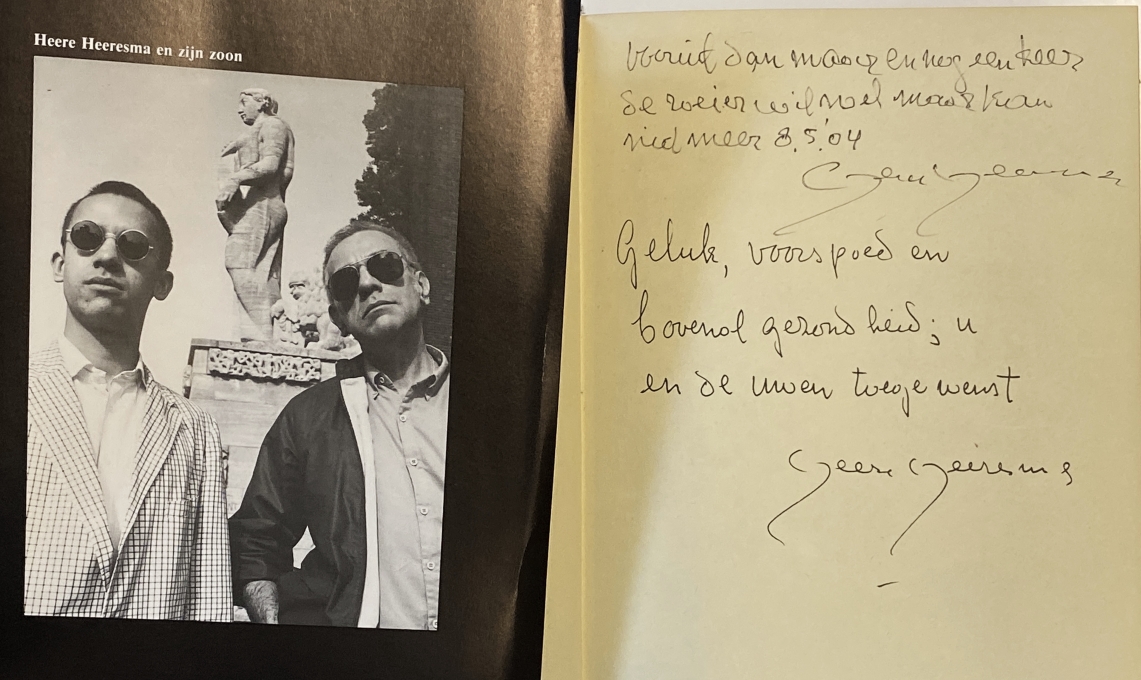 Heere Heeresma en zijn zoon
Vooruit dan maar en nog een keer
de weier wil wel maar kan
niet meer 8.5.'04
Heere Heeresma
Geluk, voorspoed en
bovenal gezondheid; u
en de uwen toegewenst
Heere Heeresma